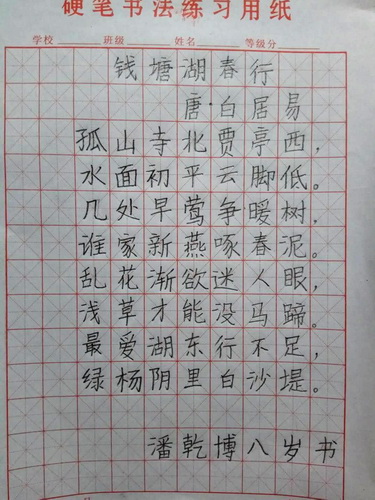 硬笔书法练习用纸
学校 班级 姓名 等级分
钱塘湖春行
唐·白居易
孤山寺北贾亭西，
水面初平云脚低。
几处早莺争暖树，
谁家新燕啄春泥。
乱花渐欲迷人眼，
浅草才能没马蹄。
最爱湖东行不足，
绿杨阴里白沙堤。
潘乾博八岁书